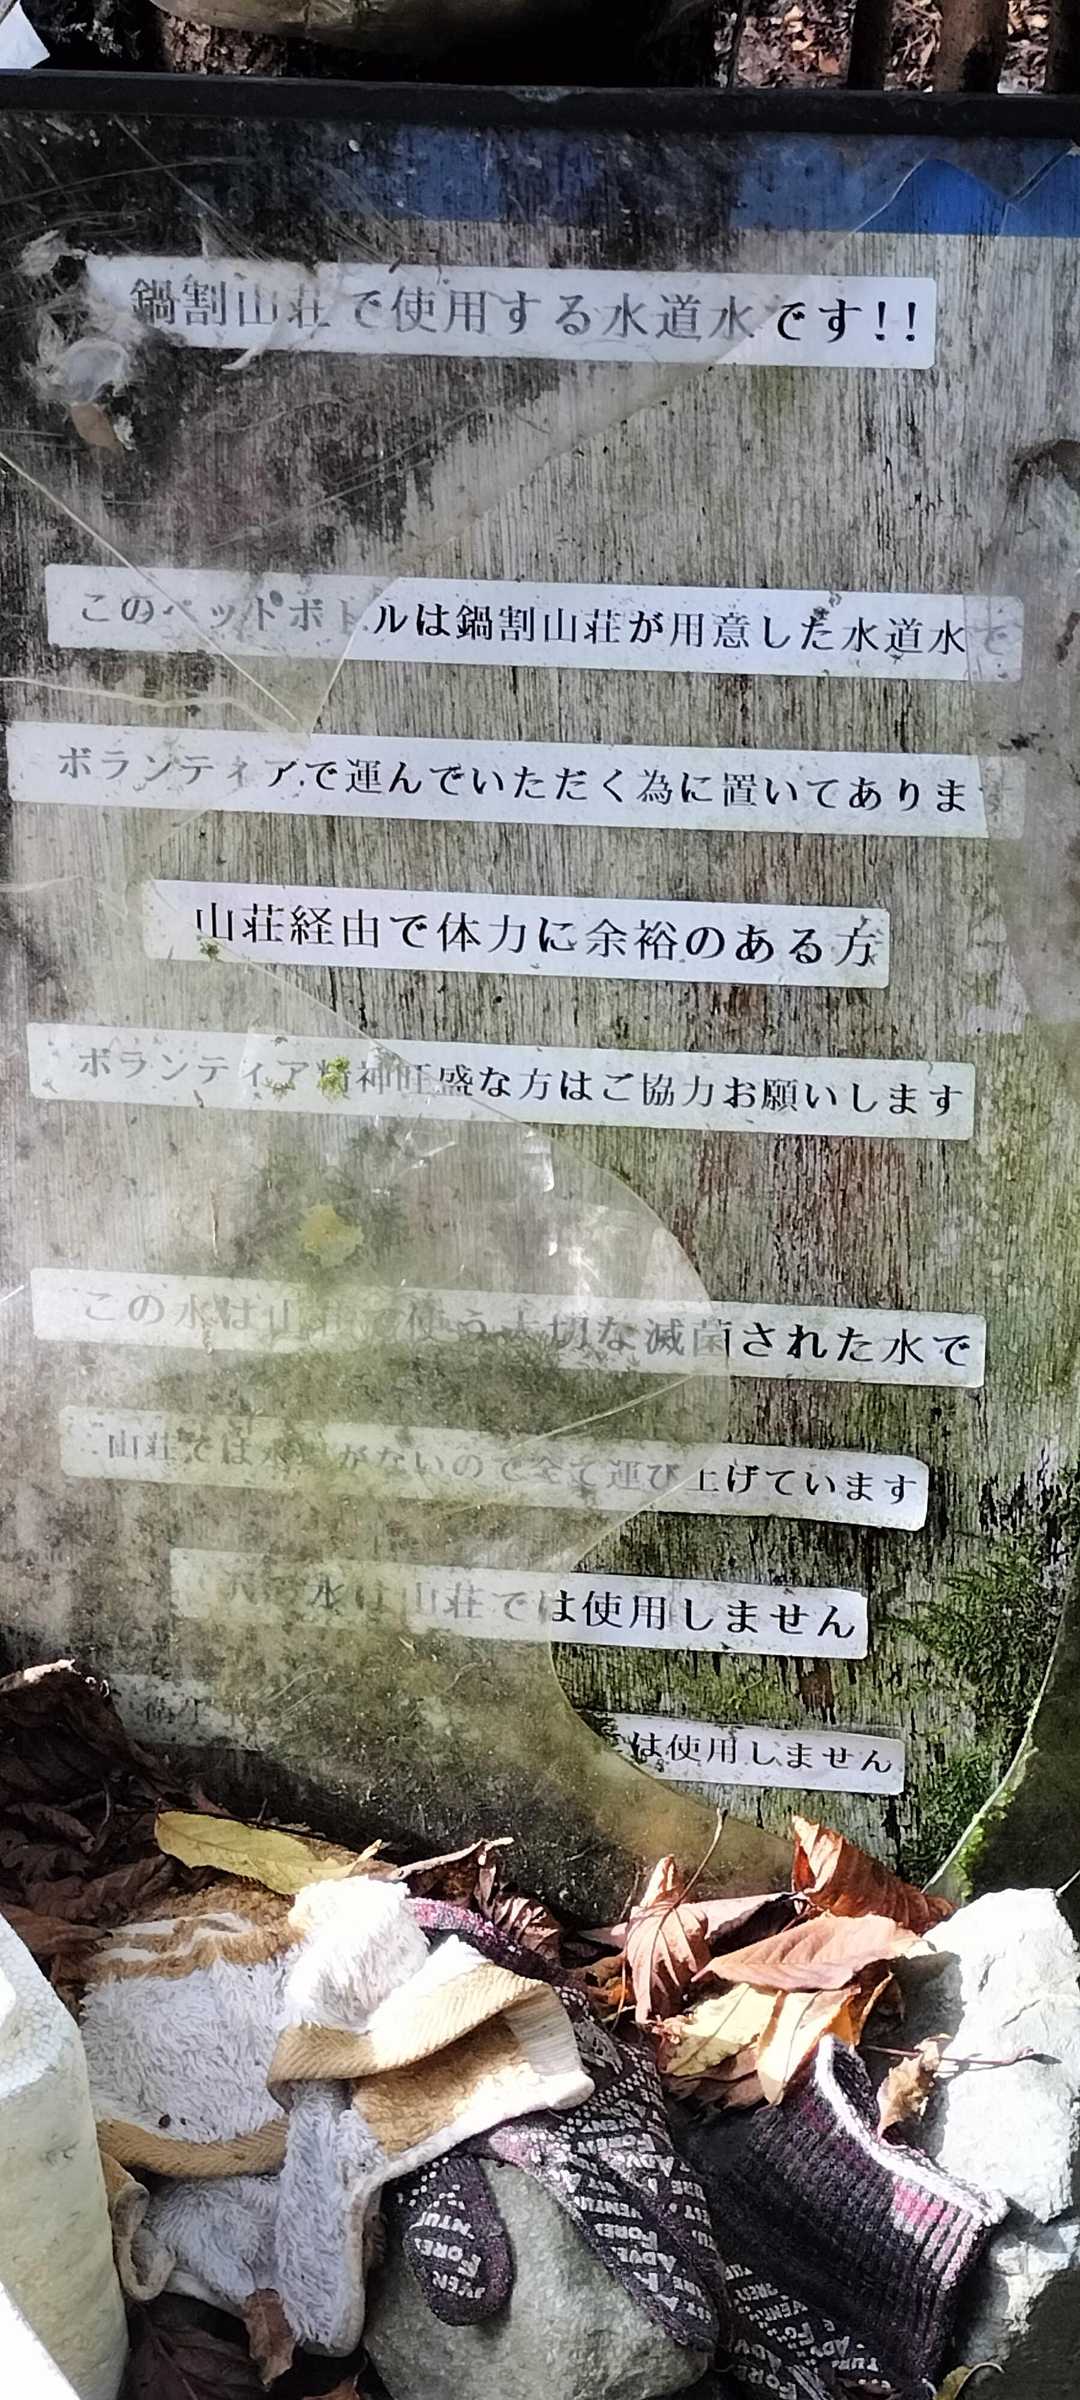 鍋割山荘で使用する水道水です!!
このペットボトルは鍋割山荘が用意した水道水で
ボランティアで運んでいただく為に置いてあります
山荘経由で体力に余裕のある方
ボランティア精神旺盛な方はご協力お願いします
この水は山荘で使う大切な滅菌された水で
山荘では水場がないので全て運び上げています
水は山荘では使用しません
は使用しません
FORE
ADVE